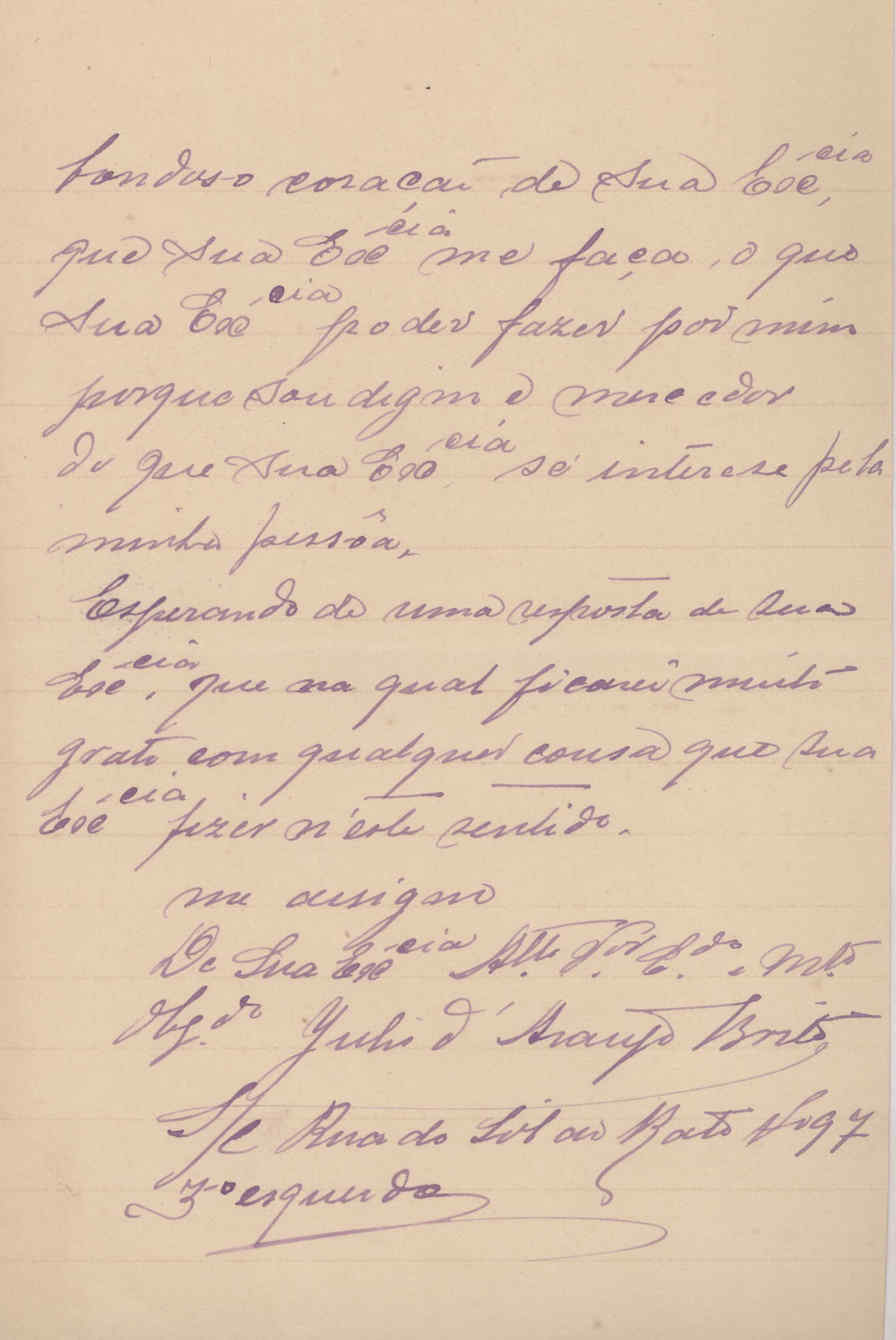 bondoso coração de sua Exc.cia,
que sua Exc.cia me faça, o que
sua Exc.cia poder fazer por mim
porque sou digno e merecedor
de que sua Exc.cia se interese pela
minha pessôa,
Esperando de uma resposta de sua
Exc.cia, que na qual ficarei muito
grato com qualquer cousa que sua
Exc.cia fizer n'este sentido.
me assigno
De Sua Exc.cia Att.to V.or C.do e Mt.o
Obg.do Julio d'Araujo Brito
S/C Rua do Sol ao Rato No 97
3º esquerdo